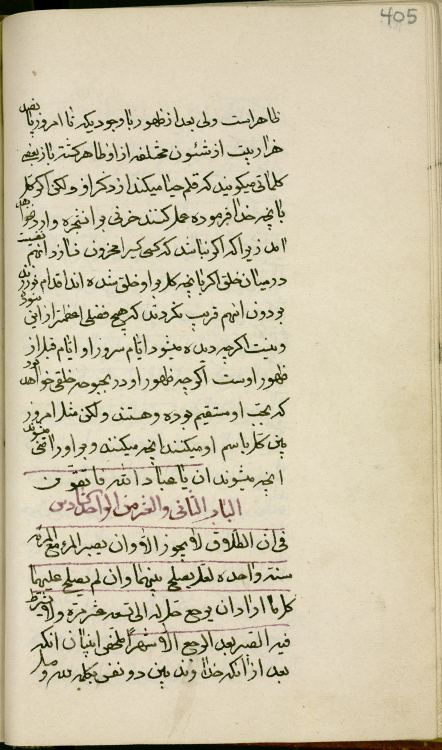 405
ظاهر است ولی بعد از ظهور با وجودیکه تا امروز پانصد
هزار بیت از شئون مختلفه از او ظاهر گشته باز بعضی
کلماتی میگویند که قلم حیا میکند از ذکر او ولکن اگر کل
بانچه خدا فرموده عمل کنند حزنی بر ان شجره وارد نخواهد
امد زیرا که اگر نباشند که کسی کسی را محزون نماید انهم
در میان خلق اگر بانچه کل بر او خلق شده اند اقدام
بودون انهم قریب نگردند که هیچ فضلی اعظم تر از این
نیست اگر چه دیده میشود ایام سرور او ایام قبل از
ظهور اوست اگر چه ظهور او در بحبوحه خلقی خواهد بود
که بحب او مستقیم بوده و هستند ولکن مثل امروز
که کل باسم او میکنند انچه میکنند و بر او راضی میشوند
انچه میشوند ان یا عباد الله فاتقون
الباب الثانی والعشر من الواحد السادس
فی ان الطلاق لا یجوز الا و ان یصبر المرء مع المرئه
سنة واحده لعل یصلح بینهما و ان لم یصلح علیهما
کلما اراد ان یرجع حل له الی تسعه عشر مره ولا یشترط
فیه الصبر بعد الرجع الا شهراً ملخص این باب انکه
بعد از انکه خداوند بین دو نفس بکلمه